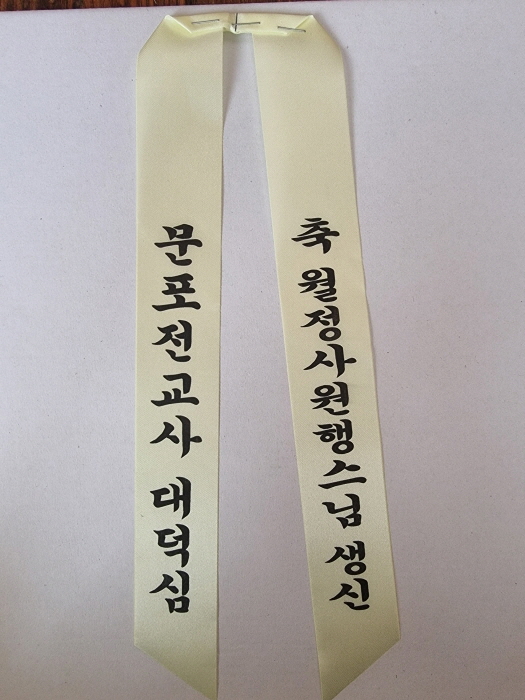 축 월정사원행스님 생신
문포전교사 대덕심